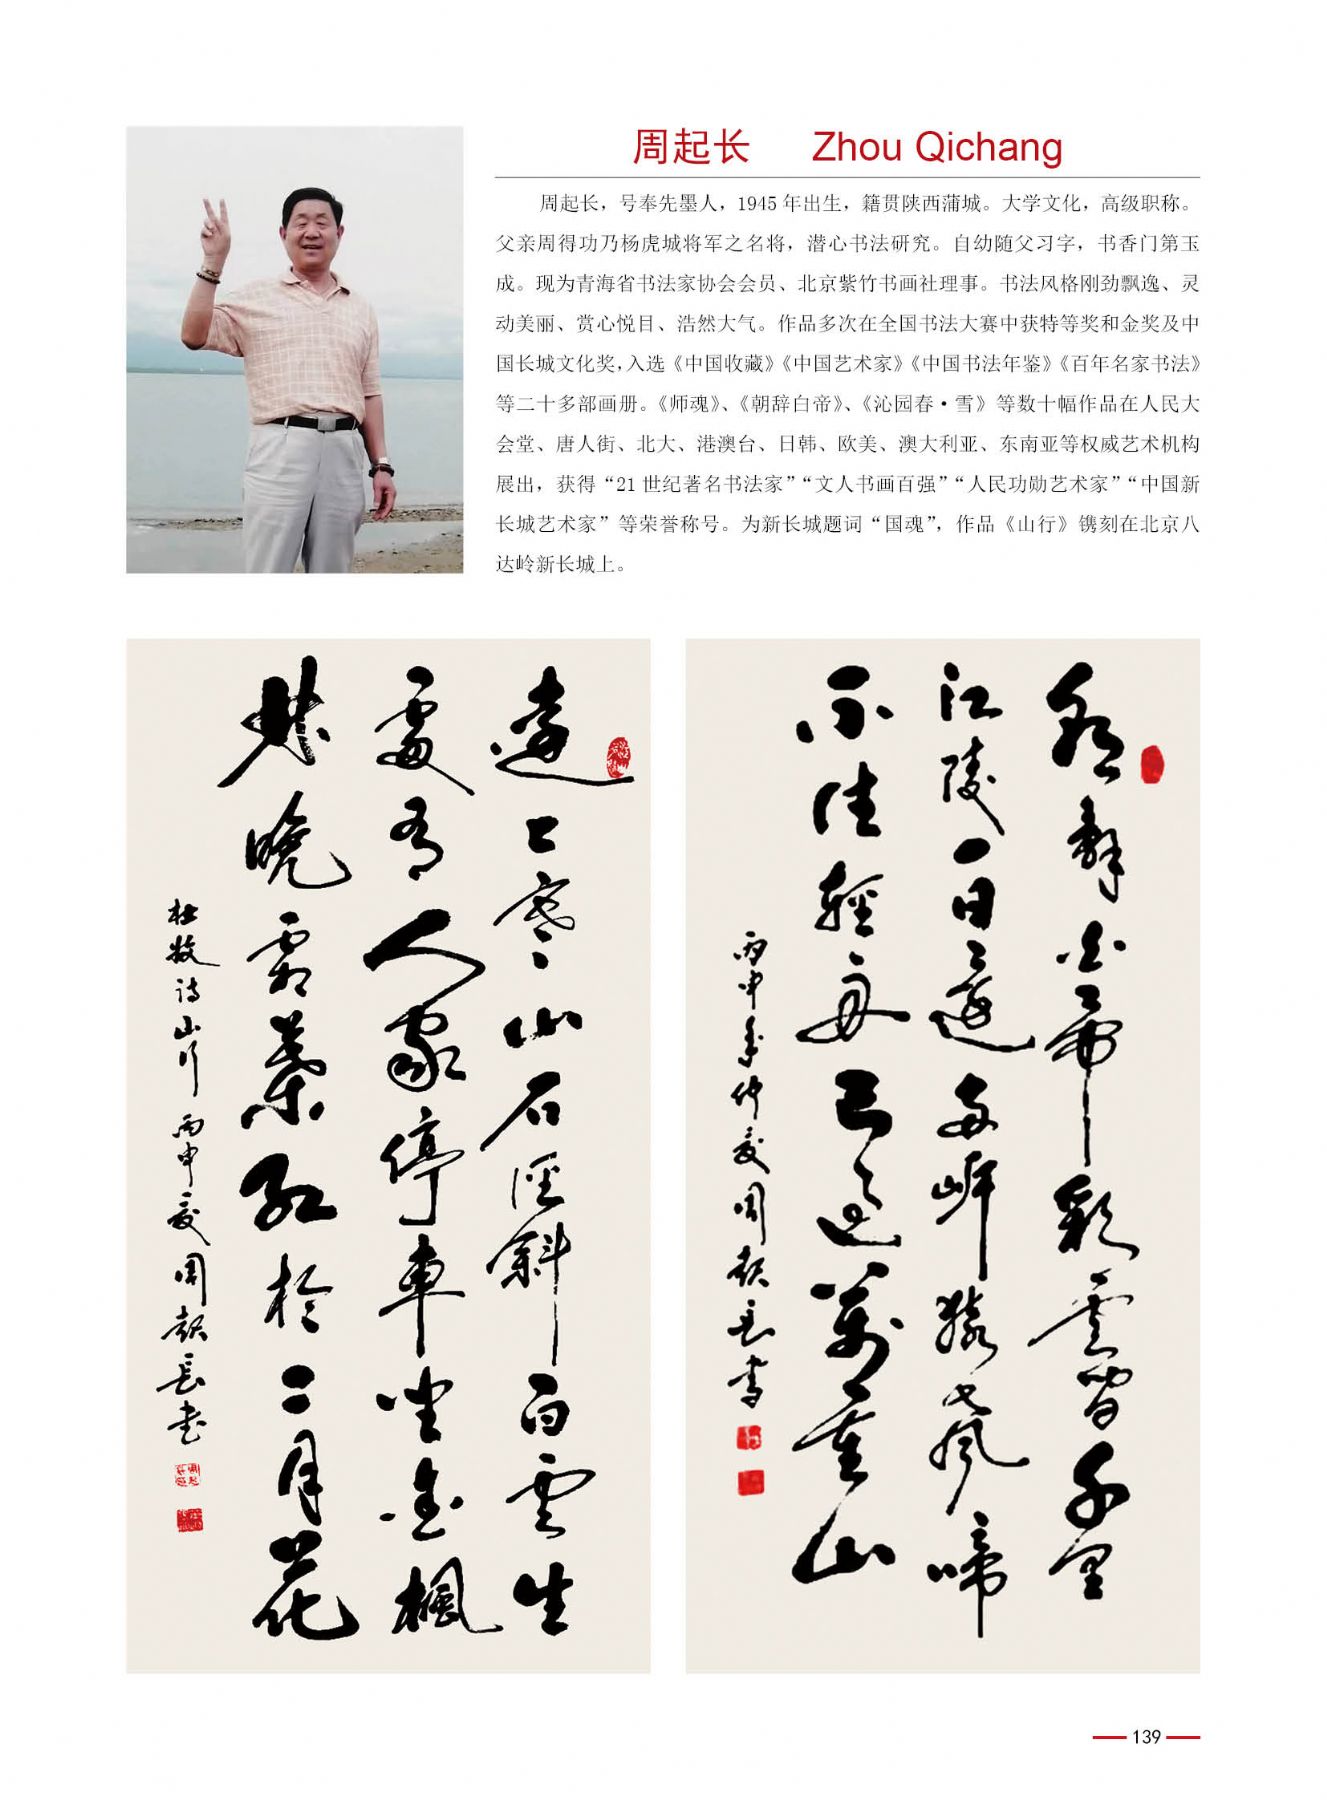 周起长 Zhou Qichang
周起长，号奉先墨人，1945年出生，籍贯陕西蒲城。大学文化，高级职称。
父亲周得功乃杨虎城将军之名将，潜心书法研究。自幼随父习字，书香门第玉
成。现为青海省书法家协会会员、北京紫竹书画社理事。书法风格刚劲飘逸、灵
动美丽、赏心悦目、浩然大气。作品多次在全国书法大赛中获特等奖和金奖及中
国长城文化奖，入选《中国收藏》《中国艺术家》《中国书法年鉴》《百年名家书法》
等二十多部画册。《师魂》、《朝辞白帝》、《沁园春·雪》等数十幅作品在人民大
会堂、唐人街、北大、港澳台、日韩、欧美、澳大利亚、东南亚等权威艺术机构
展出，获得“21世纪著名书法家”“文人书画百强”“人民功勋艺术家”“中国新
长城艺术家”等荣誉称号。为新长城题词“国魂”，作品《山行》镌刻在北京八
达岭新长城上。
遠上寒山石徑斜白雲生
處有人家停車坐愛楓
林晚霜葉紅於二月花
杜牧诗山行丙申夏周起長书
朝辭白帝彩雲間千里
江陵一日還兩岸猿聲啼
不住輕舟已過萬重山
丙申年仲夏周起長書
139